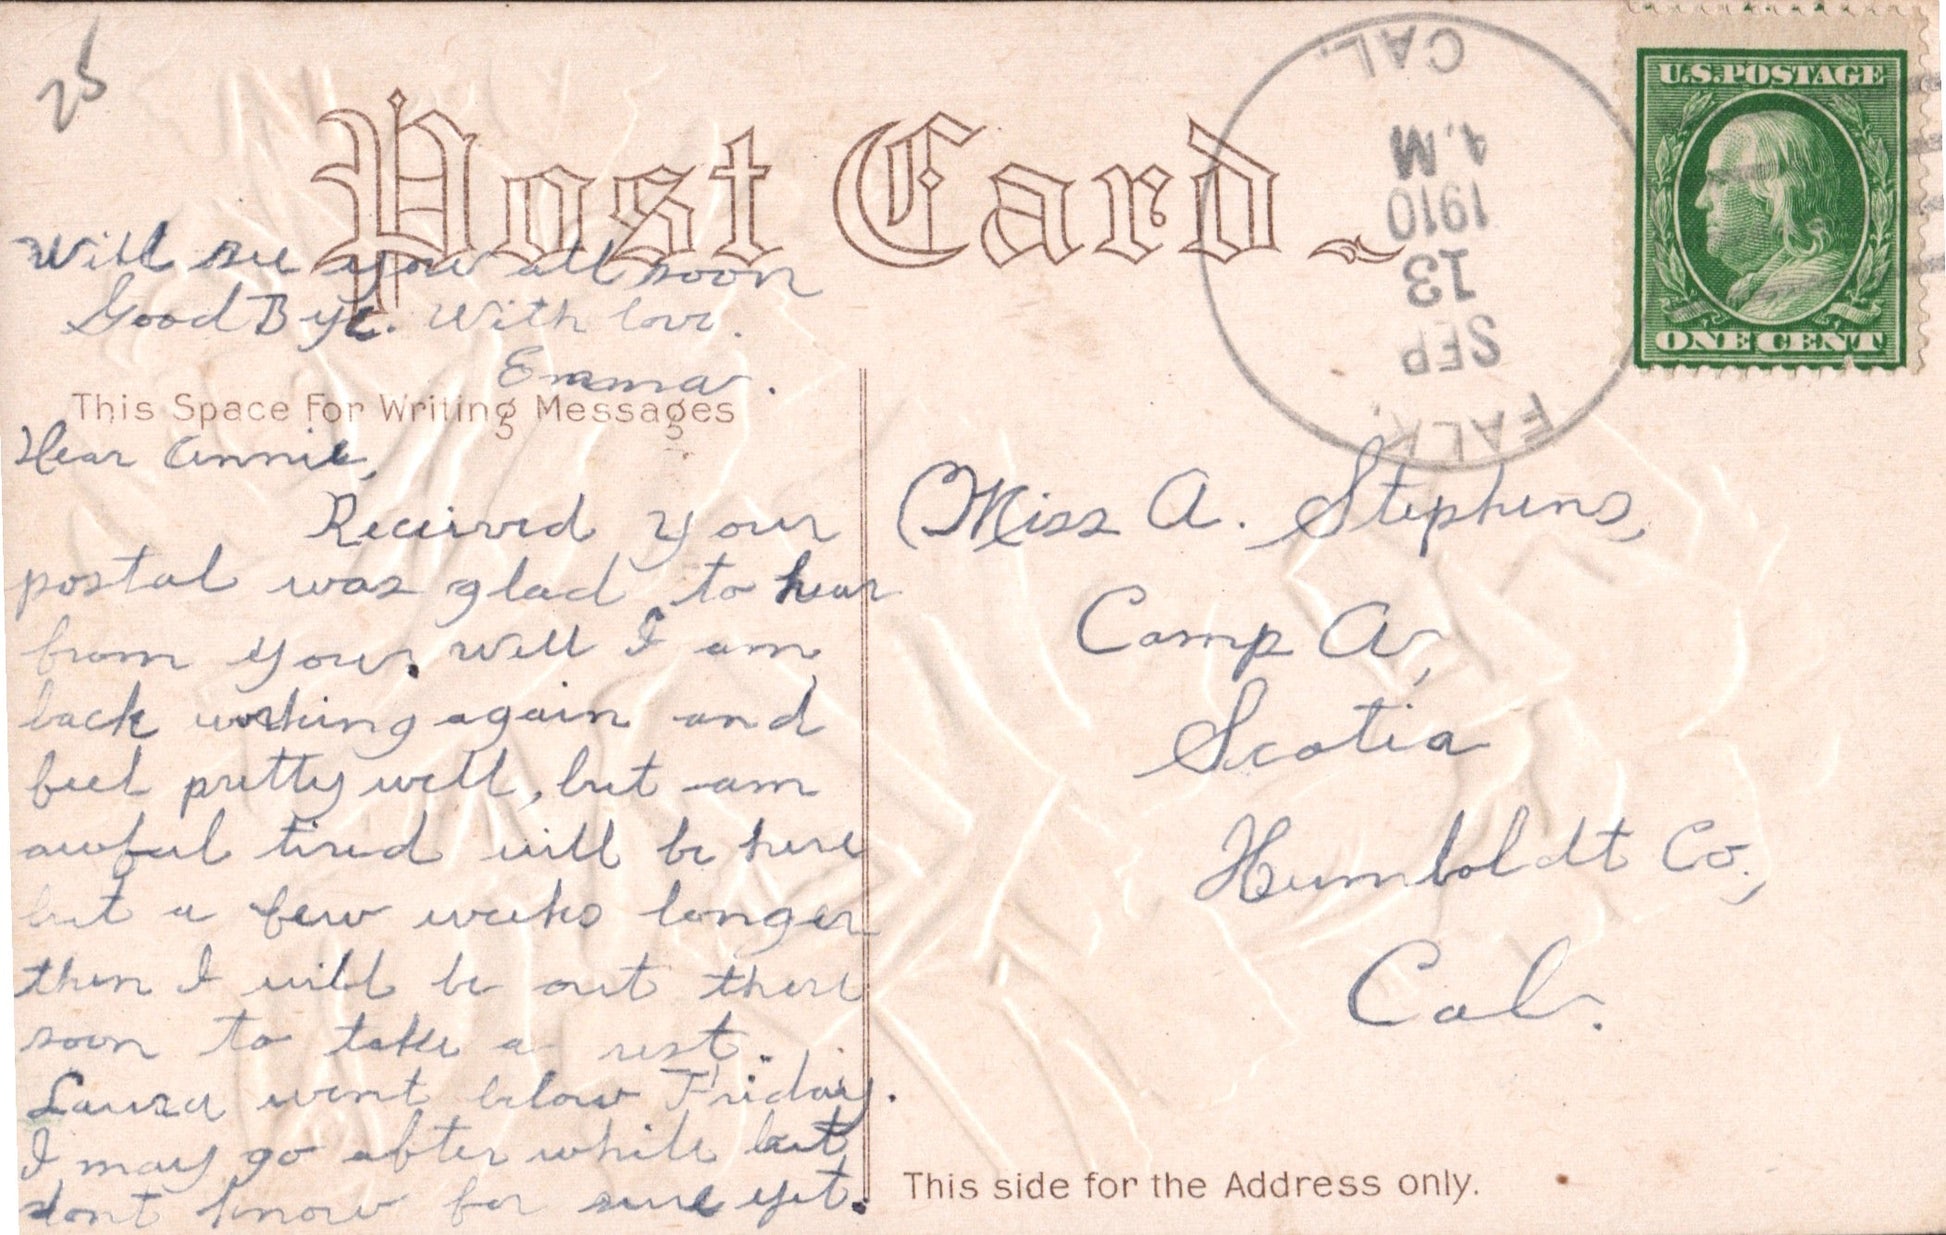 25
Post Card
CAL.
A.M
1910
13
SEP
FALK,
U.S. POSTAGE
ONE CENT
Will see you all soon
Good Bye. With love.
Emma.
This Space For Writing Messages
Dear Annie,
Received your
postal was glad to hear
from you. Well I am
back working again and
feel pretty well, but am
awful tired will be here
but a few weeks longer
then I will be out there
soon to take a rest.
Laura went below Friday.
I may go after while but
dont know for sure yet.
Miss A. Stephens,
Camp A,
Scotia
Humboldt Co.,
Cal.
This side for the Address only.